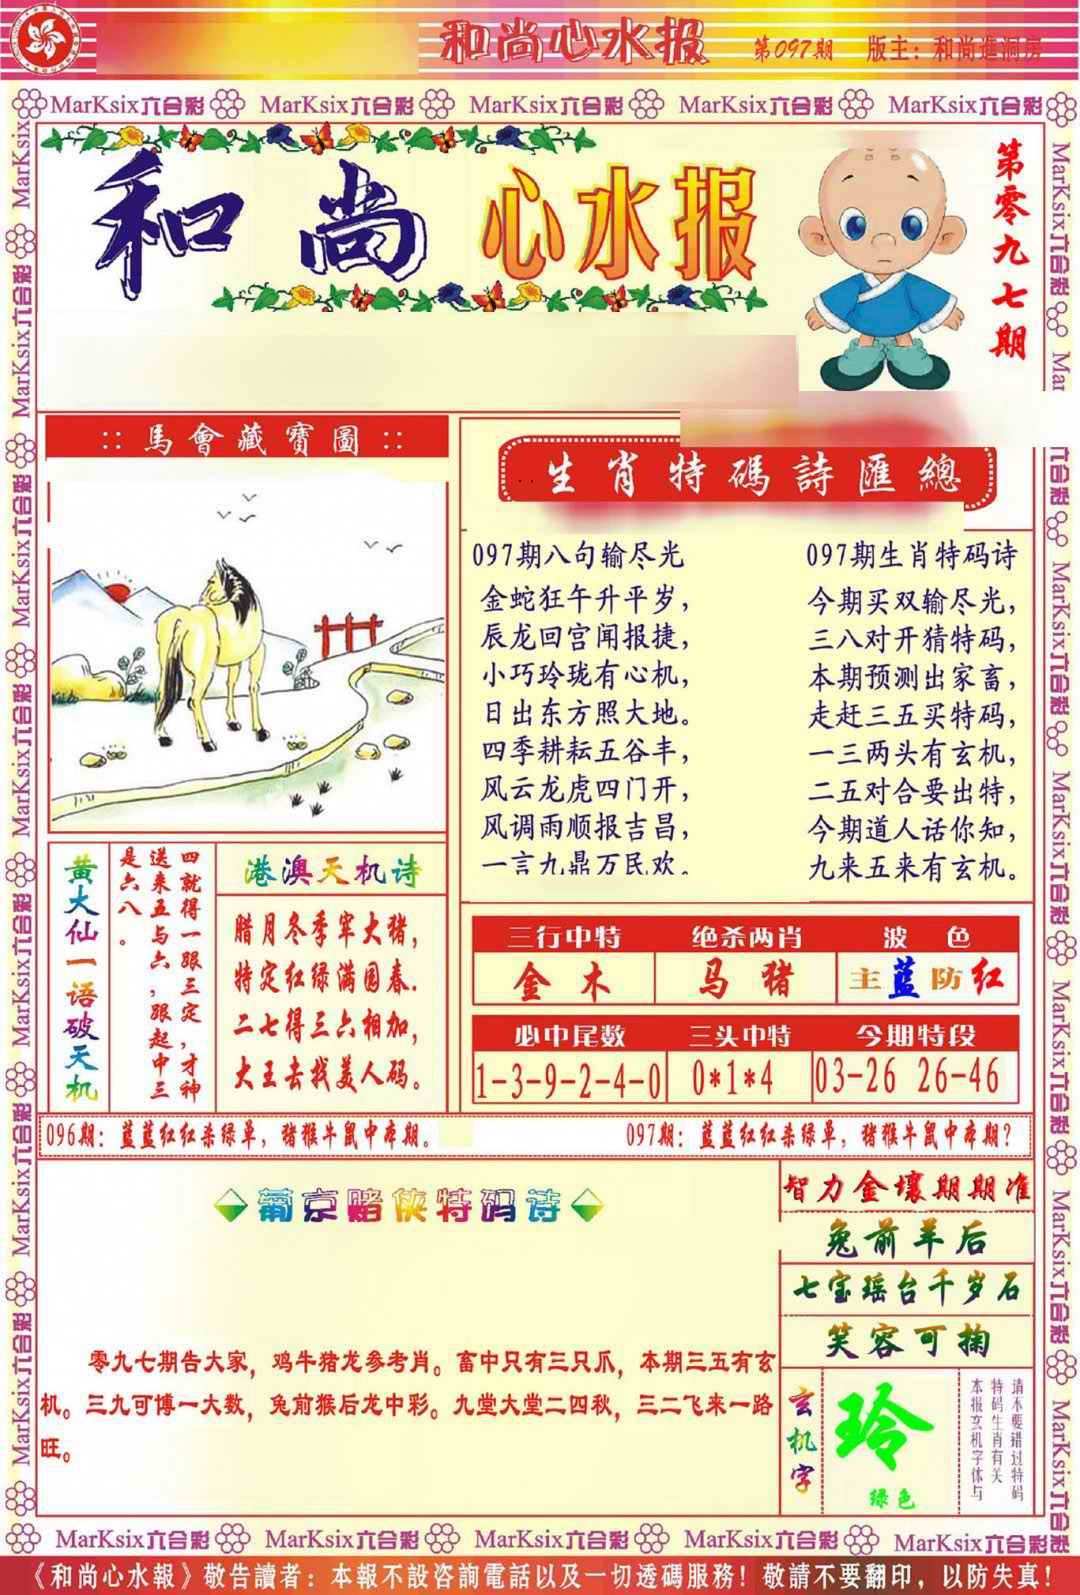 和尚心水报 第097期 版主：和尚進洞房
MarKsix六合彩 MarKsix六合彩 MarKsix六合彩 MarKsix六合彩 MarKsix六合彩
和尚心水报
第零九七期
::馬會藏寶圖::
生肖特碼詩匯總
097期八句输尽光
金蛇狂午升平岁，
辰龙回宫闻报捷，
小巧玲珑有心机，
日出东方照大地。
四季耕耘五谷丰，
风云龙虎四门开，
风调雨顺报吉昌，
一言九鼎万民欢。
097期生肖特码诗
今期买双输尽光，
三八对开猜特码，
本期预测出家畜，
走赶三五买特码，
一三两头有玄机，
二五对合要出特，
今期道人话你知，
九来五来有玄机。
黄大仙一语破天机
四就得一跟三定，才神
送来五与六，跟起中三
是六八。
港澳天机诗
腊月冬季牢大猪，
特定红绿满园春.
二七得三六相加，
大王去找美人码。
三行中特 绝杀两肖 波色
金木 马猪 主蓝防红
必中尾数 三头中特 今期特段
1-3-9-2-4-0 0*1*4 03-26 26-46
096期：蓝蓝红红杀绿单，猪猴牛鼠中本期。
097期：蓝蓝红红杀绿单，猪猴牛鼠中本期？
葡京赌侠特码诗
零九七期告大家，鸡牛猪龙参考肖。畜中只有三只爪，本期三五有玄
机。三九可博一大数，兔前猴后龙中彩。九堂大堂二四秋，三二飞来一路
旺。
智力金壤期期准
兔前羊后
七宝瑶台千岁石
笑容可掬
玄机字
玲
绿色
请不要错过特码
特码生肖有关
本报玄机字体与
MarKsix六合彩 MarKsix六合彩 MarKsix六合彩 MarKsix六合彩 MarKsix六合彩
《和尚心水報》敬告讀者：本報不設咨詢電話以及一切透碼服務！敬請不要翻印，以防失真！